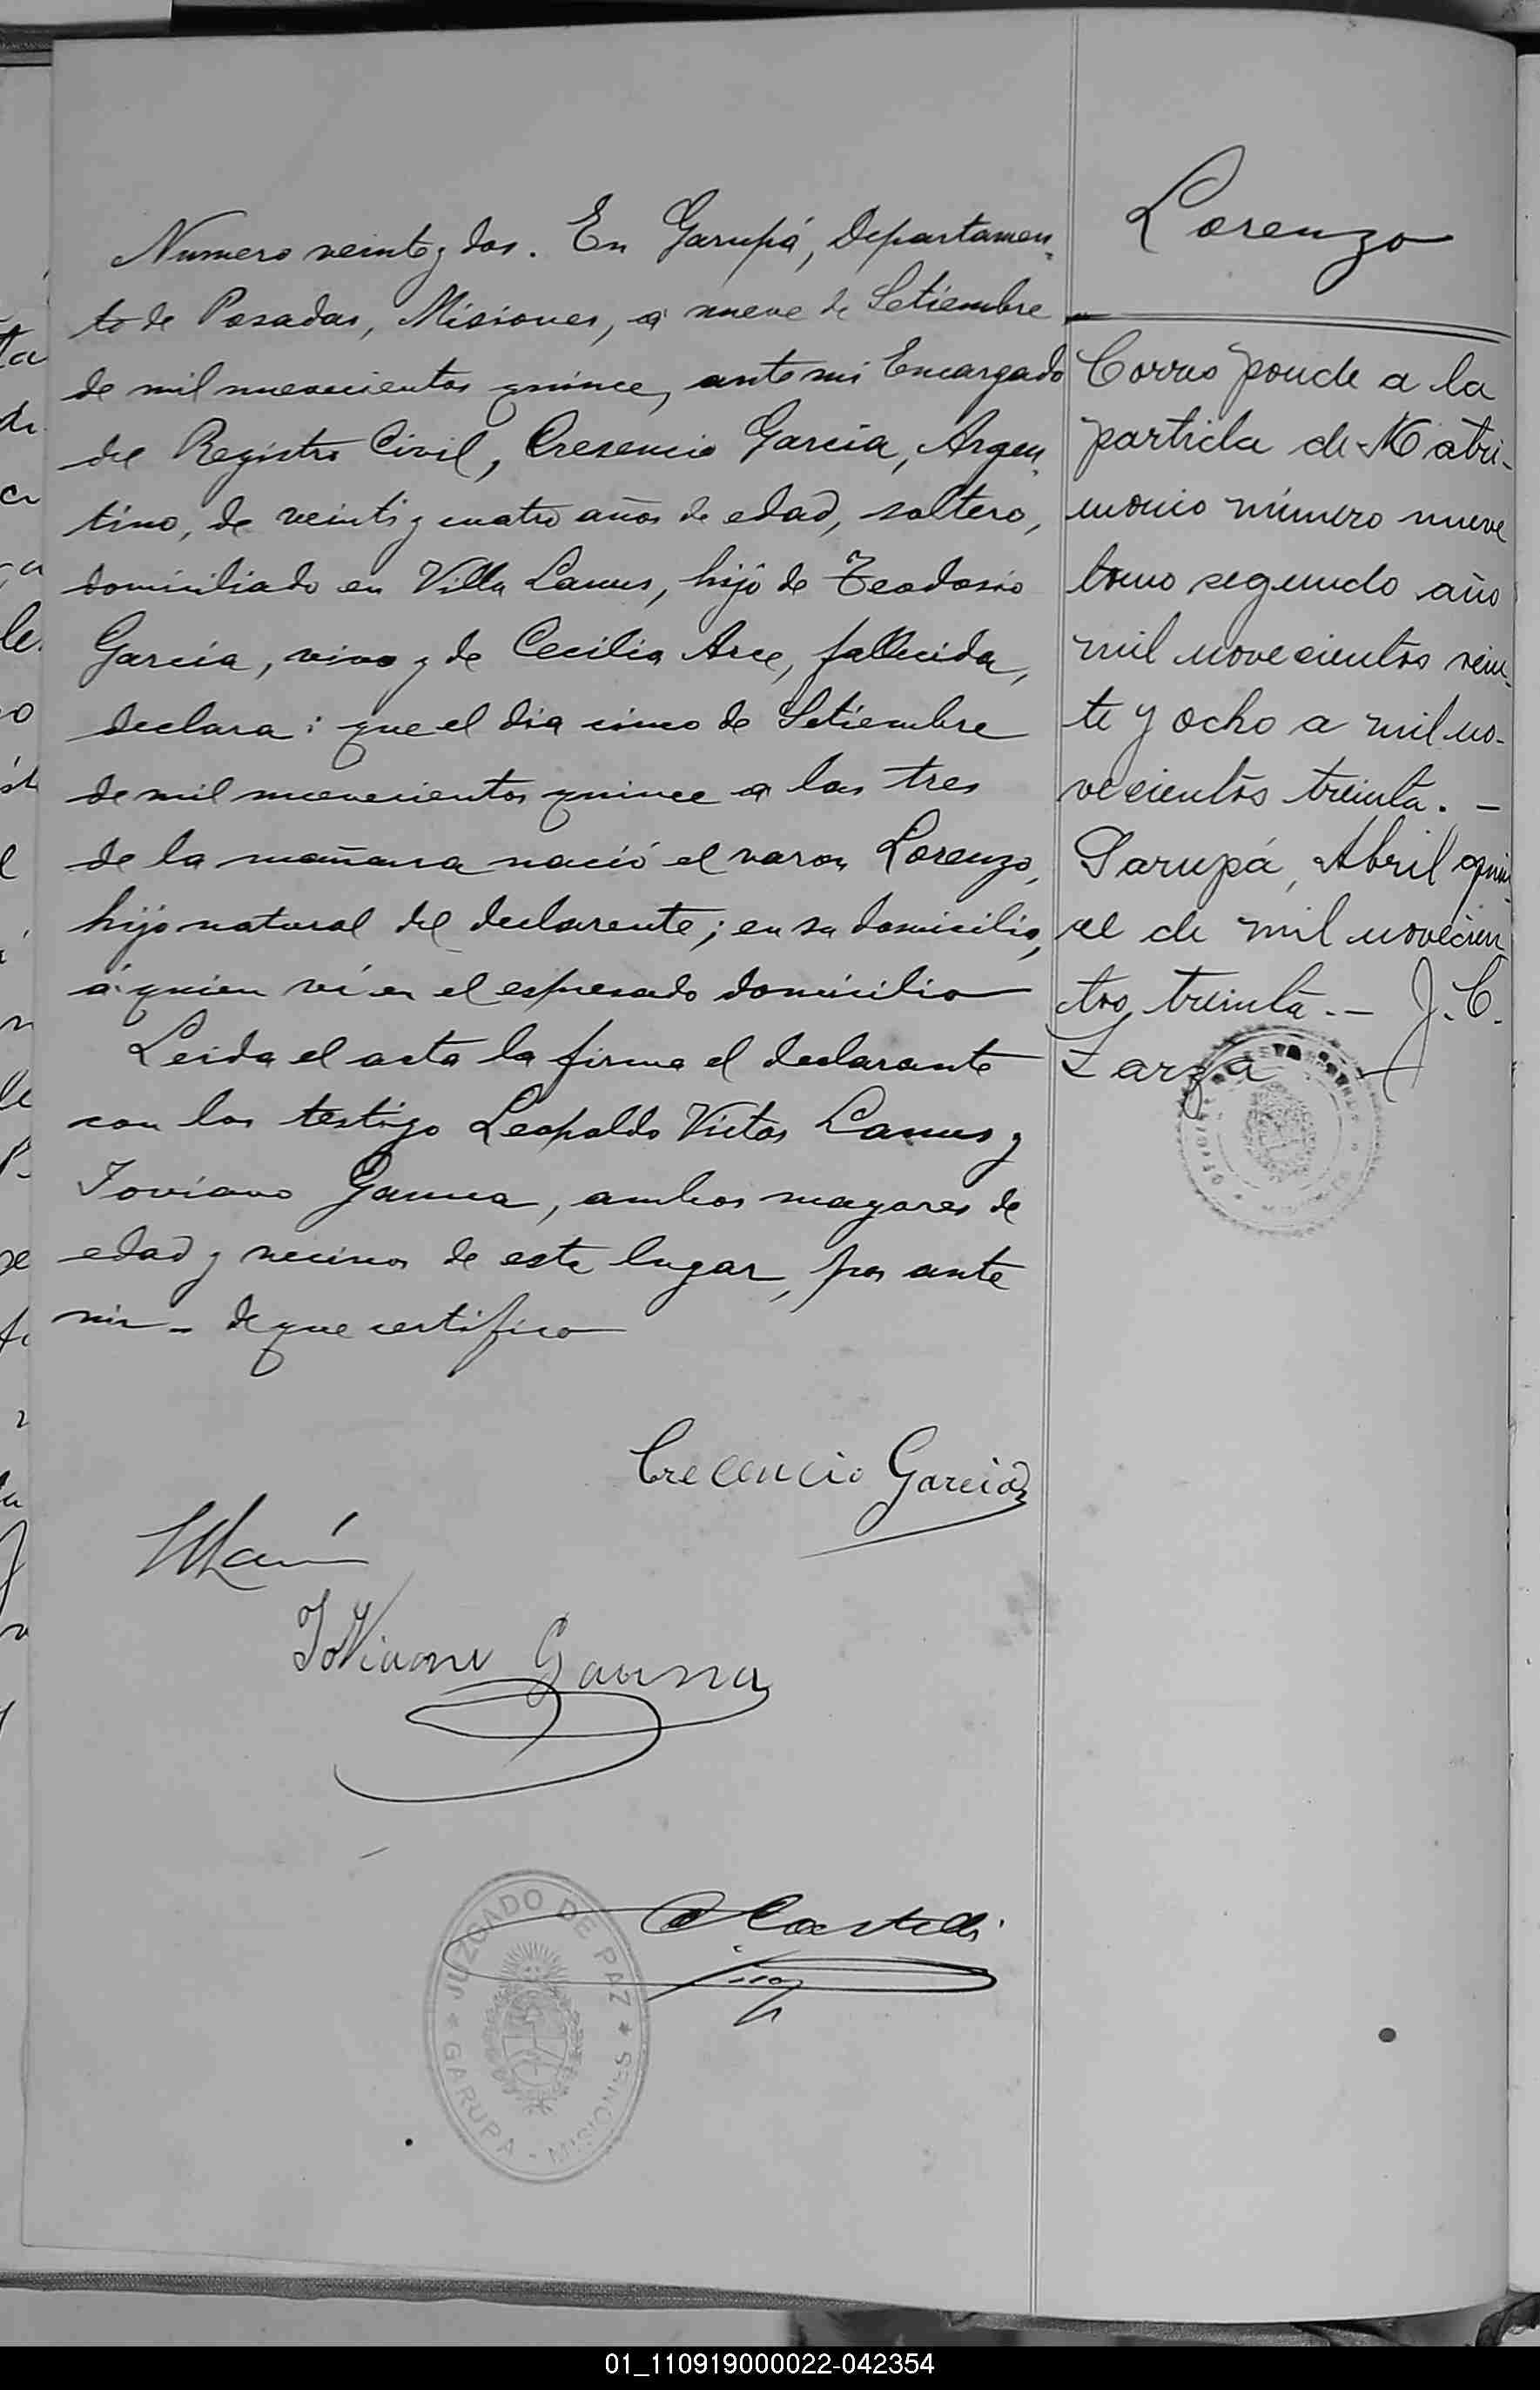 Numero veinte y dos. En Garupá, Departamen-
to de Posadas, Misiones, a nueve de Setiembre
de mil nuevecientos quince, ante mi Encargado
del Registro Civil, Cresencio Garcia, Argen-
tino, de veinti y cuatro años de edad, soltero,
domiciliado en Villa Lanus, hijo de Teodosio
Garcia, vivo y de Cecilia Arce, fallecida,
declara: que el dia cinco de Setiembre
de mil nuevecientos quince a las tres
de la mañana nació el varon Lorenzo,
hijo natural del declarente; en su domicilio,
á quien ví en el espresado domicilio
Leida el acta la firma el declarante
con los testigo Leopoldo Victor Lanus y
Joviano Gauna, ambos mayores de
edad y vecinos de este lugar, por ante
mi - de que certifico
Crecencio Garcia
Joviano Gauna
JUZGADO DE PAZ
GARUPA - MISIONES
Lorenzo
Corresponde a la
partida de Matri-
monio número nueve
tomo segundo año
mil novecientos vein-
te y ocho a mil no-
vecientos treinta. -
Garupá, Abril quin
ce de mil novecien
tos treinta. - J. C.
Zarza
01_110919000022-042354